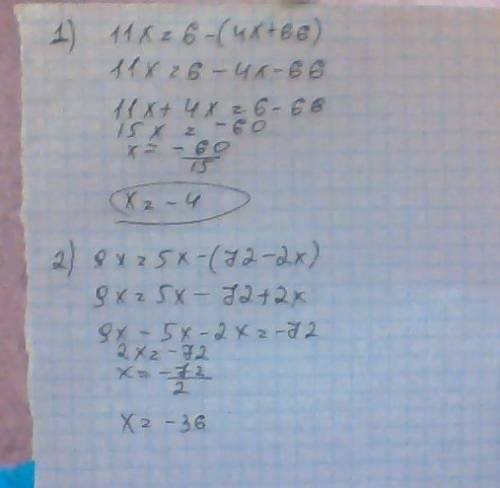 1) 11x = 6 - (4x + 66)
11x = 6 - 4x - 66
11x + 4x = 6 - 66
15x = -60
x = -60/15
x = -4
2) 9x = 5x - (72 - 2x)
9x = 5x - 72 + 2x
9x - 5x - 2x = -72
2x = -72
x = -72/2
x = -36